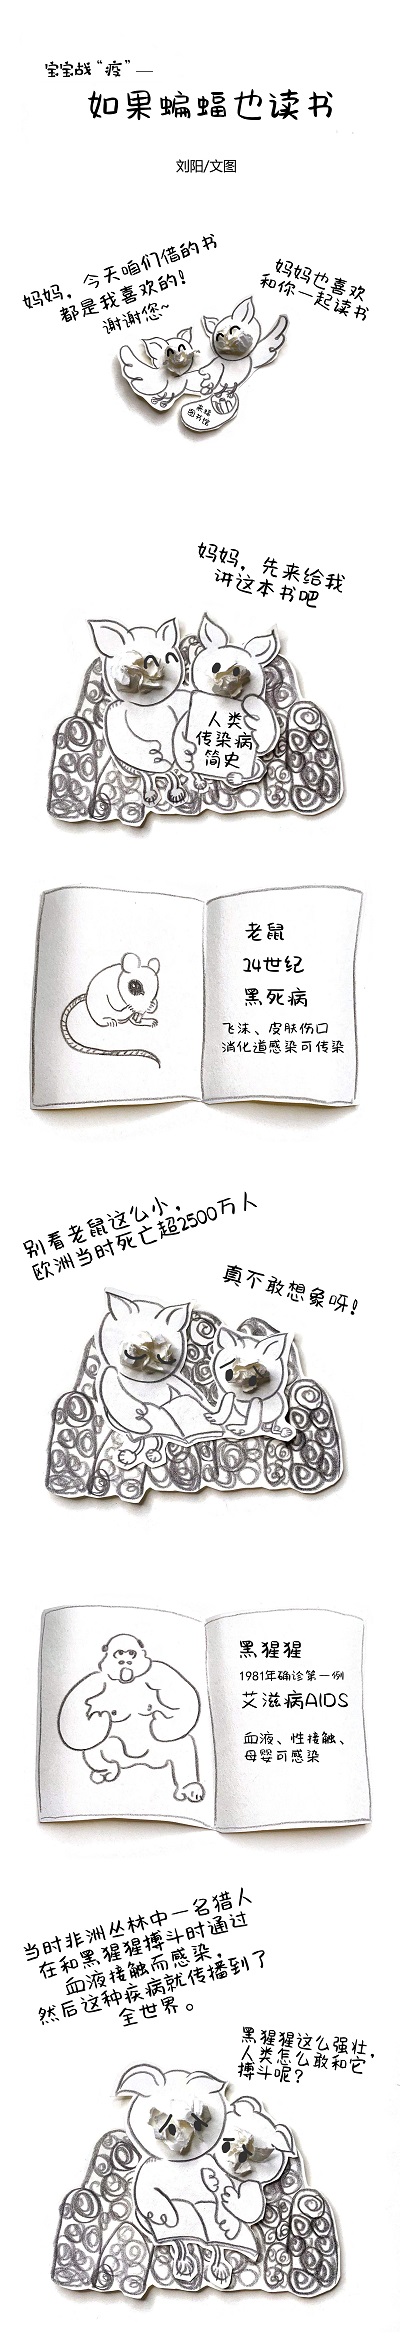 宝宝战“疫”—
如果蝙蝠也读书
刘阳/文图
妈妈，今天咱们借的书
都是我喜欢的！
谢谢您~
妈妈也喜欢
和你一起读书
来福
图书馆
妈妈，先来给我
讲这本书吧
人类
传染病
简史
老鼠
14世纪
黑死病
飞沫、皮肤伤口
消化道感染可传染
别看老鼠这么小，
欧洲当时死亡超2500万人
真不敢想象呀！
黑猩猩
1981年确诊第一例
艾滋病AIDS
血液、性接触、
母婴可感染
当时非洲丛林中一名猎人
在和黑猩猩搏斗时通过
血液接触而感染，
然后这种疾病就传播到了
全世界。
黑猩猩这么强壮，
人类怎么敢和它
搏斗呢？